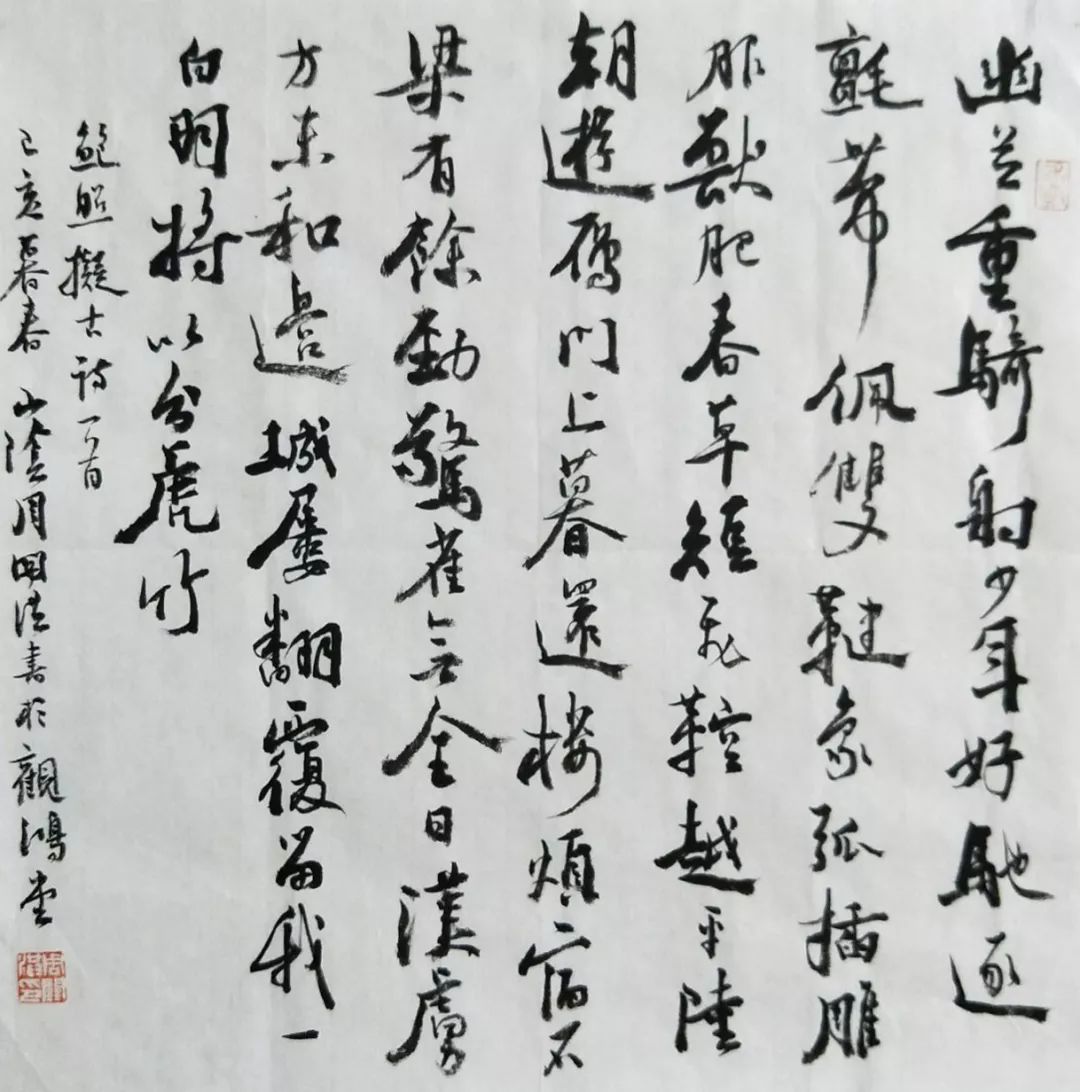 幽并重騎射少年好馳逐
氈帶佩雙鞬象弧插雕
服獸肥春草短飛鞚越平陸
朝遊雁門上暮還樓煩宿石
梁有餘勁驚雀無全目漢虜
方未和邊城屢翻覆留我一
白羽將以分虎竹
鮑照擬古詩一首
己亥暮春山陰周國書於觀鴻堂